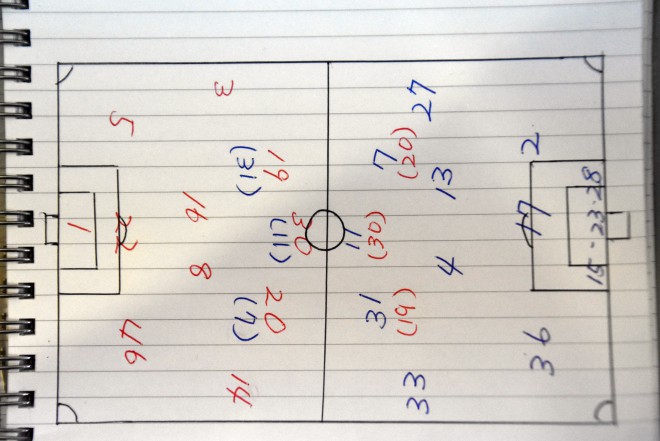 5
1
22
46
3
16
8
14
19
(31)
30
(11)
20
(7)
27
7
(20)
11
(30)
31
(19)
33
13
4
2
36
15-23-28